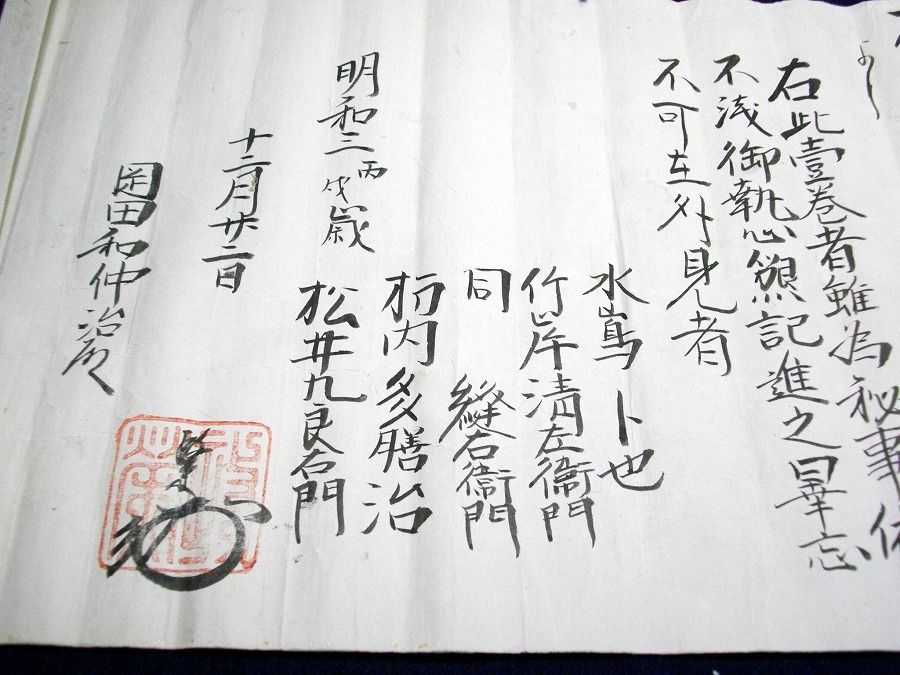 右此壹巻者雖為秘事依
不浅御執心懇記進之畢忘
不可在外見者
水嶌卜也
竹岸清左衛門
同 縫右衛門
栃内多膳治
松井九良右門
明和三丙戌歳
十二月廿二日
岡田和仲治